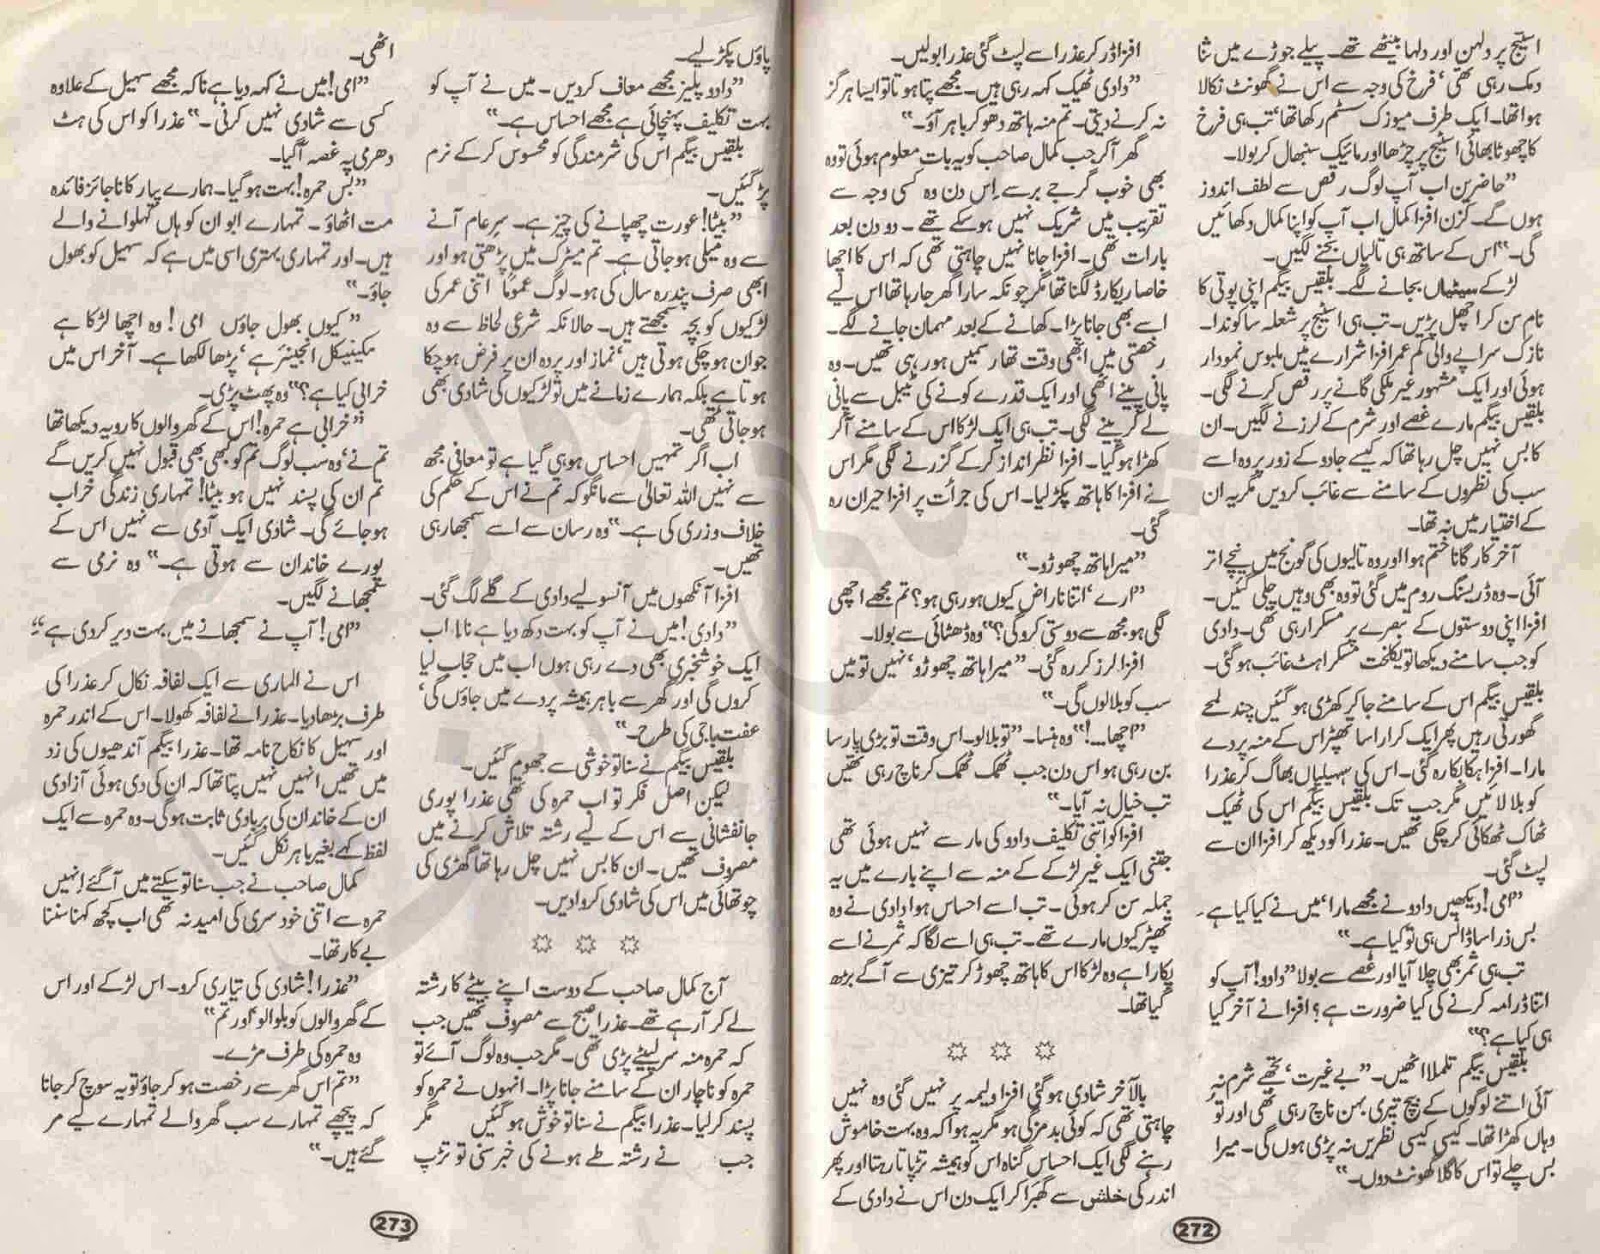 اسٹیج پر دلہن اور دلہا بیٹھے تھے۔ پیلے جوڑے میں ثنا
دمک رہی تھی، فرخ کی وجہ سے اس نے گھونٹ نکالا
ہوا تھا۔ ایک طرف میوزک سسٹم رکھا تھا، تب ہی فرخ
کا چھوٹا بھائی اسٹیج پر چڑھا اور مائیک سنبھال کر بولا۔
”حاضرین اب آپ لوگ رقص سے لطف اندوز
ہوں گے۔ کزن افزا کمال اب آپ کو اپنا کمال دکھائیں
گی۔“ اس کے ساتھ ہی تالیاں بجنے لگیں۔
لڑکے سیٹیاں بجانے لگے۔ بلقیس بیگم اپنی پوتی کا
نام سن کر اچھل پڑیں۔ تب ہی اسٹیج پر شعلہ سا کوندا۔
نازک سراپے والی کم عمر افزا شرارے میں ملبوس نمودار
ہوئی اور ایک مشہور غیر ملکی گانے پر رقص کرنے لگی۔
بلقیس بیگم مارے غصے اور شرم کے لرزنے لگیں۔ ان
کا بس نہیں چل رہا تھا کہ کیسے جادو کے زور پر وہ اسے
سب کی نظروں کے سامنے سے غائب کردیں مگر یہ ان
کے اختیار میں نہ تھا۔
آخر کار گانا ختم ہوا اور وہ تالیوں کی گونج میں نیچے اتر
آئی۔ وہ ڈریسنگ روم میں گئی تو وہ بھی وہیں چلی گئیں۔
افزا اپنی دوستوں کے تبصرے پر مسکرا رہی تھی۔ دادی
کو جب سامنے دیکھا تو یکلخت مسکراہٹ غائب ہوگئی۔
بلقیس بیگم اس کے سامنے جا کر کھڑی ہوگئیں چند لمحے
گھورتی رہیں پھر ایک کرارا سا تھپڑ اس کے منہ پر دے
مارا۔ افزا ہکا بکا رہ گئی۔ اس کی سہیلیاں بھاگ کر عذرا
کو بلا لائیں مگر جب تک بلقیس بیگم اس کی ٹھیک
ٹھاک ٹھکائی کر چکی تھیں۔ عذرا کو دیکھ کر افزا ان سے
لپٹ گئی۔
”امی! دیکھیں دادو نے مجھے مارا، میں نے کیا کیا ہے۔
بس ذرا سا ڈانس ہی تو کیا ہے۔“
تب ہی ثمر بھی چلا آیا اور غصے سے بولا ”دادو! آپ کو
اتنا ڈرامہ کرنے کی کیا ضرورت ہے؟ افزا نے آخر کیا
ہی کیا ہے؟“
بلقیس بیگم تلملا اٹھیں۔ ”بے غیرت، تجھے شرم نہ
آئی اتنے لوگوں کے بیچ تیری بہن ناچ رہی تھی اور تو
وہاں کھڑا تھا۔ کیسی کیسی نظریں نہ پڑی ہوں گی۔ میرا
بس چلے تو اس کا گلا گھونٹ دوں۔“
افزا ڈر کر عذرا سے لپٹ گئی عذرا بولیں۔
”دادی ٹھیک کہہ رہی ہیں۔ مجھے پتا ہوتا تو ایسا ہرگز
نہ کرنے دیتی۔ تم منہ ہاتھ دھو کر باہر آؤ۔“
گھر آکر جب کمال صاحب کو یہ بات معلوم ہوئی تو وہ
بھی خوب گرجے برسے اس دن وہ کسی وجہ سے
تقریب میں شریک نہیں ہوسکے تھے۔ دو دن بعد
بارات تھی۔ افزا جانا نہیں چاہتی تھی کہ اس کا اچھا
خاصا ریکارڈ لگنا تھا مگر چونکہ سارا گھر جا رہا تھا اس لیے
اسے بھی جانا پڑا۔ کھانے کے بعد مہمان جانے لگے۔
رخصتی میں ابھی وقت تھا رسمیں ہو رہی تھیں۔ وہ
پانی پینے اٹھی اور ایک قدرے کونے کی ٹیبل سے پانی
لے کر پینے لگی۔ تب ہی ایک لڑکا اس کے سامنے آکر
کھڑا ہوگیا۔ افزا نظر انداز کرکے گزرنے لگی مگر اس
نے افزا کا ہاتھ پکڑ لیا۔ اس کی جرأت پر افزا حیران رہ
گئی۔
”میرا ہاتھ چھوڑو۔“
”ارے، اتنا ناراض کیوں ہو رہی ہو؟ تم مجھے اچھی
لگی ہو مجھ سے دوستی کرو گی؟“ وہ ڈھٹائی سے بولا۔
افزا لرز کر رہ گئی۔ ”میرا ہاتھ چھوڑو، نہیں تو میں
سب کو بلا لوں گی۔“
”اچھا...!“ وہ ہنسا۔ ”تو بلا لو۔ اس وقت تو بڑی پارسا
بن رہی ہو اس دن جب ٹھمک ٹھمک کر ناچ رہی تھیں
تب خیال نہ آیا۔“
افزا کو اتنی تکلیف دادو کی مار سے نہیں ہوئی تھی
جتنی ایک غیر لڑکے کے منہ سے اپنے بارے میں یہ
جملہ سن کر ہوئی۔ تب اسے احساس ہوا دادی نے وہ
تھپڑ کیوں مارے تھے۔ تب ہی اسے لگا کہ ثمر نے اسے
پکارا ہے وہ لڑکا اس کا ہاتھ چھوڑ کر تیزی سے آگے بڑھ
گیا تھا۔
بالآخر شادی ہوگئی افزا ولیمہ پر نہیں گئی وہ نہیں
چاہتی تھی کہ کوئی بدمزگی ہو مگر یہ ہوا کہ وہ بہت خاموش
رہنے لگی ایک احساس گناہ اس کو ہمیشہ تڑپاتا رہتا اور پھر
اندر کی خلش سے گھبرا کر ایک دن اس نے دادی کے
272
پاؤں پکڑ لیے۔
”دادو پلیز مجھے معاف کردیں۔ میں نے آپ کو
بہت تکلیف پہنچائی ہے مجھے احساس ہے۔“
بلقیس بیگم اس کی شرمندگی کو محسوس کرکے نرم
پڑ گئیں۔
”بیٹا! عورت چھپانے کی چیز ہے۔ سرِعام آنے
سے وہ میلی ہوجاتی ہے۔ تم میٹرک میں پڑھتی ہو اور
ابھی صرف پندرہ سال کی ہو۔ لوگ عموماً اتنی عمر کی
لڑکیوں کو بچہ سمجھتے ہیں۔ حالانکہ شرعی لحاظ سے وہ
جوان ہوچکی ہوتی ہیں، نماز اور پردہ ان پر فرض ہوچکا
ہوتا ہے بلکہ ہمارے زمانے میں تو لڑکیوں کی شادی بھی
ہوجاتی تھی۔
اب اگر تمہیں احساس ہو ہی گیا ہے تو معافی مجھ
سے نہیں اللہ تعالیٰ سے مانگو کہ تم نے اس کے حکم کی
خلاف ورزی کی ہے۔“ وہ رسان سے اسے سمجھا رہی
تھیں۔
افزا آنکھوں میں آنسو لیے دادی کے گلے لگ گئی۔
”دادی! میں نے آپ کو بہت دکھ دیا ہے نا، اب
ایک خوشخبری بھی دے رہی ہوں اب میں حجاب لیا
کروں گی اور گھر سے باہر ہمیشہ پردے میں جاؤں گی،
عفت باجی کی طرح۔“
بلقیس بیگم نے سنا تو خوشی سے جھوم گئیں۔
لیکن اصل فکر تو اب حمرہ کی تھی عذرا پوری
جانفشانی سے اس کے لیے رشتہ تلاش کرنے میں
مصروف تھیں۔ ان کا بس نہیں چل رہا تھا گھڑی کی
چوتھائی میں اس کی شادی کروا دیں۔
آج کمال صاحب کے دوست اپنے بیٹے کا رشتہ
لے کر آ رہے تھے۔ عذرا صبح سے مصروف تھیں جب
کہ حمرہ منہ سر لپیٹے پڑی تھی۔ مگر جب وہ لوگ آئے تو
حمرہ کو ناچار ان کے سامنے جانا پڑا۔ انہوں نے حمرہ کو
پسند کرلیا۔ عذرا بیگم نے سنا تو خوش ہوگئیں مگر
جب نے رشتہ طے ہونے کی خبر سنی تو تڑپ
اٹھی۔
”امی! میں نے کہہ دیا ہے نا کہ مجھے سہیل کے علاوہ
کسی سے شادی نہیں کرنی۔“ عذرا کو اس کی ہٹ
دھرمی پہ غصہ آگیا۔
”بس حمرہ! بہت ہوگیا۔ ہمارے پیار کا ناجائز فائدہ
مت اٹھاؤ۔ تمہارے ابو ان کو ہاں کہلوانے والے
ہیں۔ اور تمہاری بہتری اسی میں ہے کہ سہیل کو بھول
جاؤ۔“
”کیوں بھول جاؤں امی! وہ اچھا لڑکا ہے
مکینیکل انجینئر ہے، پڑھا لکھا ہے۔ آخر اس میں
خرابی کیا ہے؟“ وہ پھٹ پڑی۔
”خرابی ہے حمرہ! اس کے گھر والوں کا رویہ دیکھا تھا
تم نے، وہ سب لوگ تم کو کبھی بھی قبول نہیں کریں گے
تم ان کی پسند نہیں ہو بیٹا! تمہاری زندگی خراب
ہوجائے گی۔ شادی ایک آدمی سے نہیں اس کے
پورے خاندان سے ہوتی ہے۔“ وہ نرمی سے
سمجھانے لگیں۔
”امی! آپ نے سمجھانے میں بہت دیر کردی ہے“
اس نے الماری سے ایک لفافہ نکال کر عذرا کی
طرف بڑھا دیا۔ عذرا نے لفافہ کھولا۔ اس کے اندر حمرہ
اور سہیل کا نکاح نامہ تھا۔ عذرا بیگم آندھیوں کی زد
میں تھیں انہیں نہیں پتا تھا کہ ان کی دی ہوئی آزادی
ان کے خاندان کی بربادی ثابت ہوگی۔ وہ حمرہ سے ایک
لفظ کہے بغیر باہر نکل گئیں۔
کمال صاحب نے جب سنا تو سکتے میں آگئے انہیں
حمرہ سے اتنی خود سری کی امید نہ تھی اب کچھ کہنا سننا
بے کار تھا۔
”عذرا! شادی کی تیاری کرو۔ اس لڑکے اور اس
کے گھر والوں کو بلوا لو، اور تم“
وہ حمرہ کی طرف مڑے۔
”تم اس گھر سے رخصت ہوکر جاؤ تو یہ سوچ کر جانا
کہ پیچھے تمہارے سب گھر والے تمہارے لیے مر
گئے ہیں۔“
273